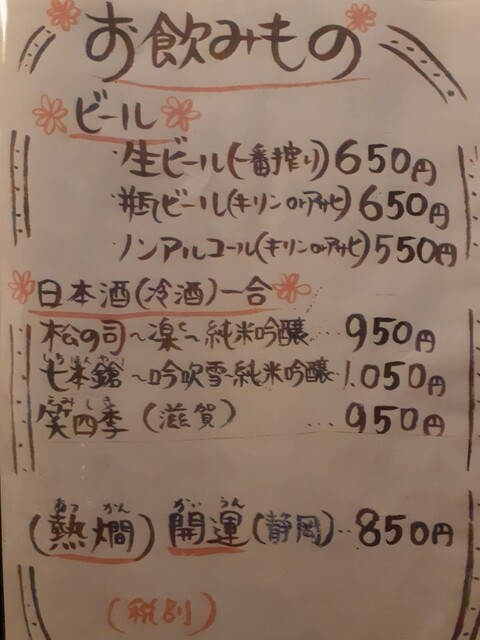 お飲みもの
ビール
生ビール(一番搾り) 650円
瓶ビール(キリンorアサヒ) 650円
ノンアルコール(キリンorアサヒ) 550円
日本酒(冷酒)一合
松の司~楽~純米吟醸… 950円
しちほんやり
七本鎗~吟吹雪~純米吟醸 1.050円
えみしき
笑四季(滋賀) … 950円
あつかん かいうん
(熱燗) 開運(静岡)… 850円
(税別)